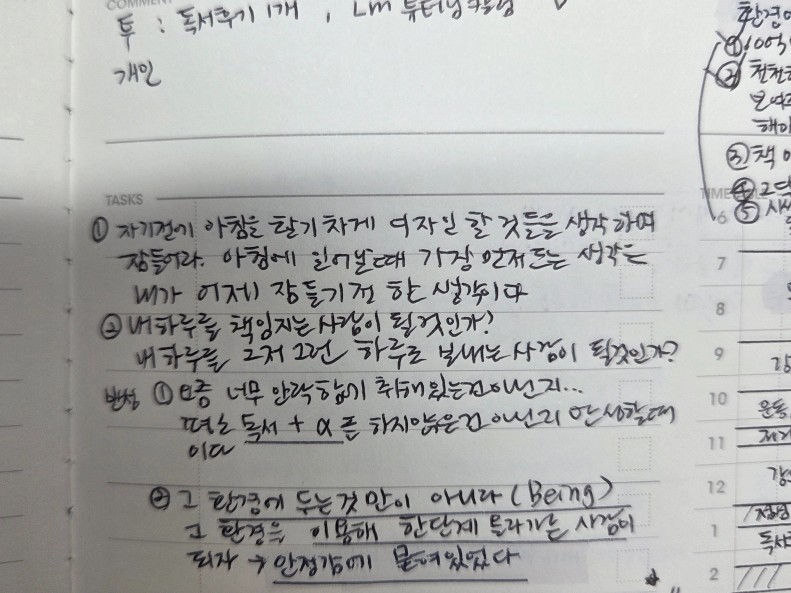 COMMENT
투 : 독서후기 1개 , LM 튜터링
개인
TASKS
① 자기전에 아침을 활기차게 디자인 할 것들을 생각하며
잠들어라. 아침에 일어날때 가장 먼저 드는 생각은
내가 어제 잠들기전 한 생각이다
② 내 하루를 책임지는 사람이 될것인가?
내 하루를 그저 그런 하루로 보내는 사람이 될것인가?
반성 ① 요즘 너무 안락함에 취해있는건 아닌지...
평소 독서 + α 를 하지않은건 아닌지 반성할때
이다
② 그 환경에 두는것 만이 아니라 (Being)
그 환경을 이용해 한단계 올라가는 사람이
되자 → 안정감에 묻혀있었다
환경에
① 100억
② 천천히
③ 책
④ 그
⑤
6
7
8
9
10
운동
11
12
1
독서
2